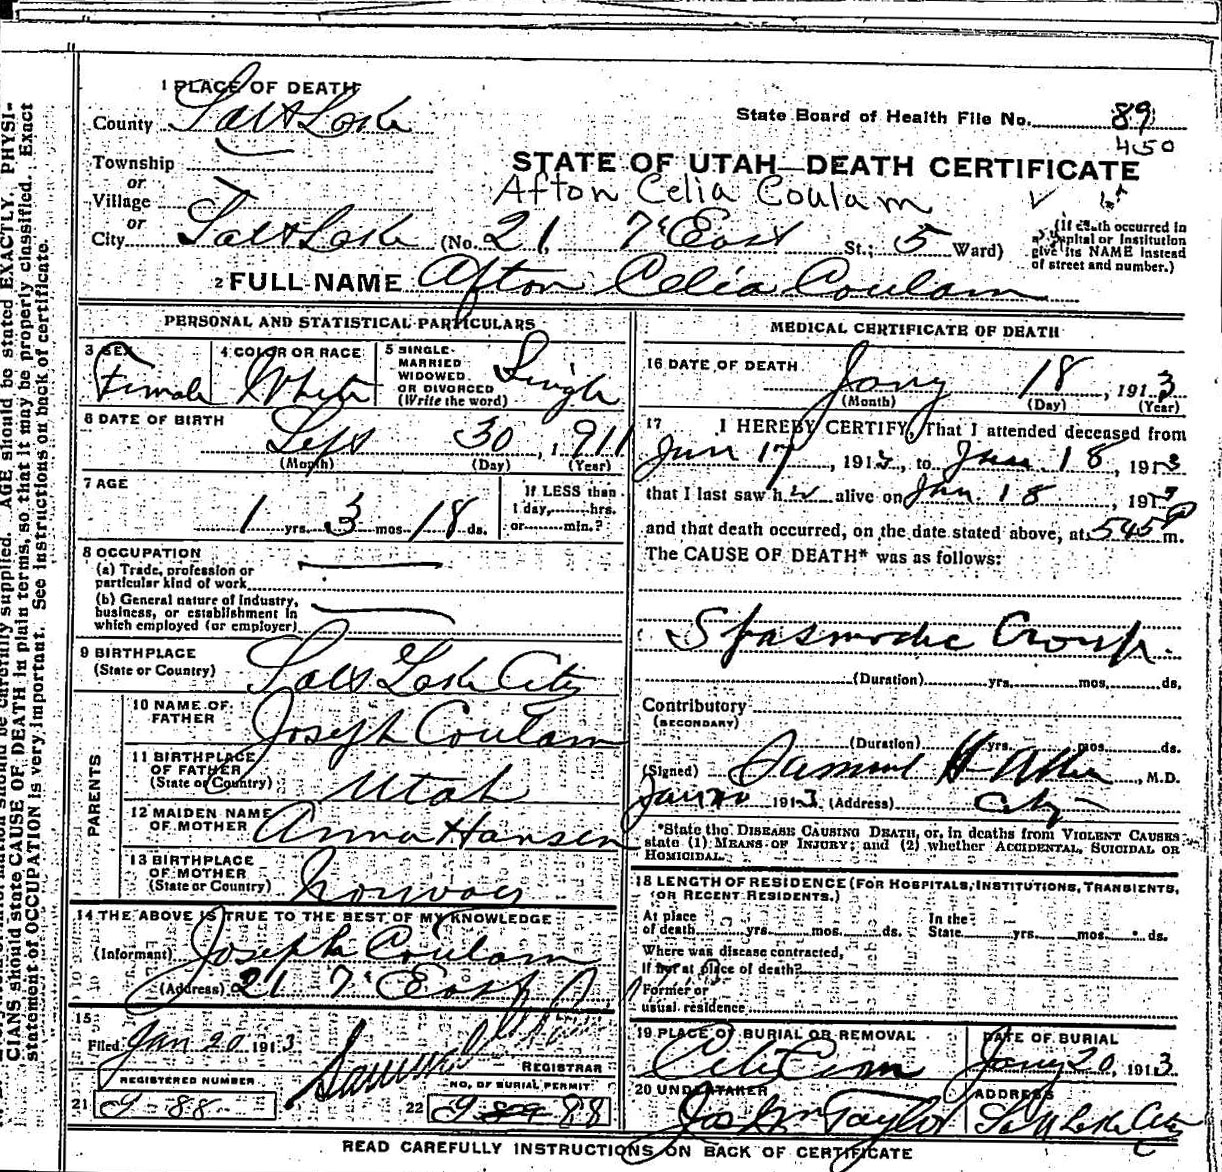 1 PLACE OF DEATH
County Salt Lake
State Board of Health File No. 89
450
Township
or
Village
or
City Salt Lake (No. 21 7th East St.; 5 Ward)
STATE OF UTAH—DEATH CERTIFICATE
Afton Celia Coulam
(If death occurred in
a Hospital or Institution
give its NAME instead
of street and number.)
2 FULL NAME Afton Celia Coulam
PERSONAL AND STATISTICAL PARTICULARS
3 SEX Female
4 COLOR OR RACE White
5 SINGLE MARRIED WIDOWED OR DIVORCED (Write the word) Single
6 DATE OF BIRTH Sept 30, 1911
(Month) (Day) (Year)
7 AGE
1 yrs. 3 mos. 18 ds.
If LESS than
1 day, hrs.
or min.?
8 OCCUPATION
(a) Trade, profession or
particular kind of work
(b) General nature of Industry,
business, or establishment in
which employed (or employer)
9 BIRTHPLACE
(State or Country) Salt Lake City
PARENTS
10 NAME OF FATHER Joseph Coulam
11 BIRTHPLACE OF FATHER (State or Country) Utah
12 MAIDEN NAME OF MOTHER Anna Hansen
13 BIRTHPLACE OF MOTHER (State or Country) Norway
14 THE ABOVE IS TRUE TO THE BEST OF MY KNOWLEDGE
(Informant) Joseph Coulam
(Address) 21 7 East
15
Filed Jan 20 1913
REGISTRAR
REGISTERED NUMBER
21 88
NO. OF BURIAL PERMIT
22 88
MEDICAL CERTIFICATE OF DEATH
16 DATE OF DEATH
Jany 18, 1913
(Month) (Day) (Year)
17 I HEREBY CERTIFY, That I attended deceased from
Jan 17, 1913, to Jan 18, 1913
that I last saw her alive on Jan 18, 1913
and that death occurred, on the date stated above, at 545 P m.
The CAUSE OF DEATH* was as follows:
Spasmodic Croup.
(Duration) yrs. mos. ds.
Contributory
(SECONDARY)
(Duration) yrs. mos. ds.
(Signed) Samuel H Allen, M.D.
Jan 20 1913 (Address) City
*State the DISEASE CAUSING DEATH, or, in deaths from VIOLENT CAUSES
state (1) MEANS OF INJURY; and (2) whether ACCIDENTAL, SUICIDAL OR
HOMICIDAL.
18 LENGTH OF RESIDENCE (FOR HOSPITALS, INSTITUTIONS, TRANSIENTS,
OR RECENT RESIDENTS.)
At place of death yrs. mos. ds. In the State yrs. mos. ds.
Where was disease contracted,
If not at place of death?
Former or
usual residence
19 PLACE OF BURIAL OR REMOVAL City Cem
DATE OF BURIAL Jany 20, 1913
20 UNDERTAKER Jos Wm Taylor
ADDRESS Salt Lake City
READ CAREFULLY INSTRUCTIONS ON BACK OF CERTIFICATE
information should be carefully supplied. AGE should be stated EXACTLY. PHYSI-
CIANS should state CAUSE OF DEATH in plain terms, so that it may be properly classified. Exact
statement of OCCUPATION is very important. See instructions on back of certificate.